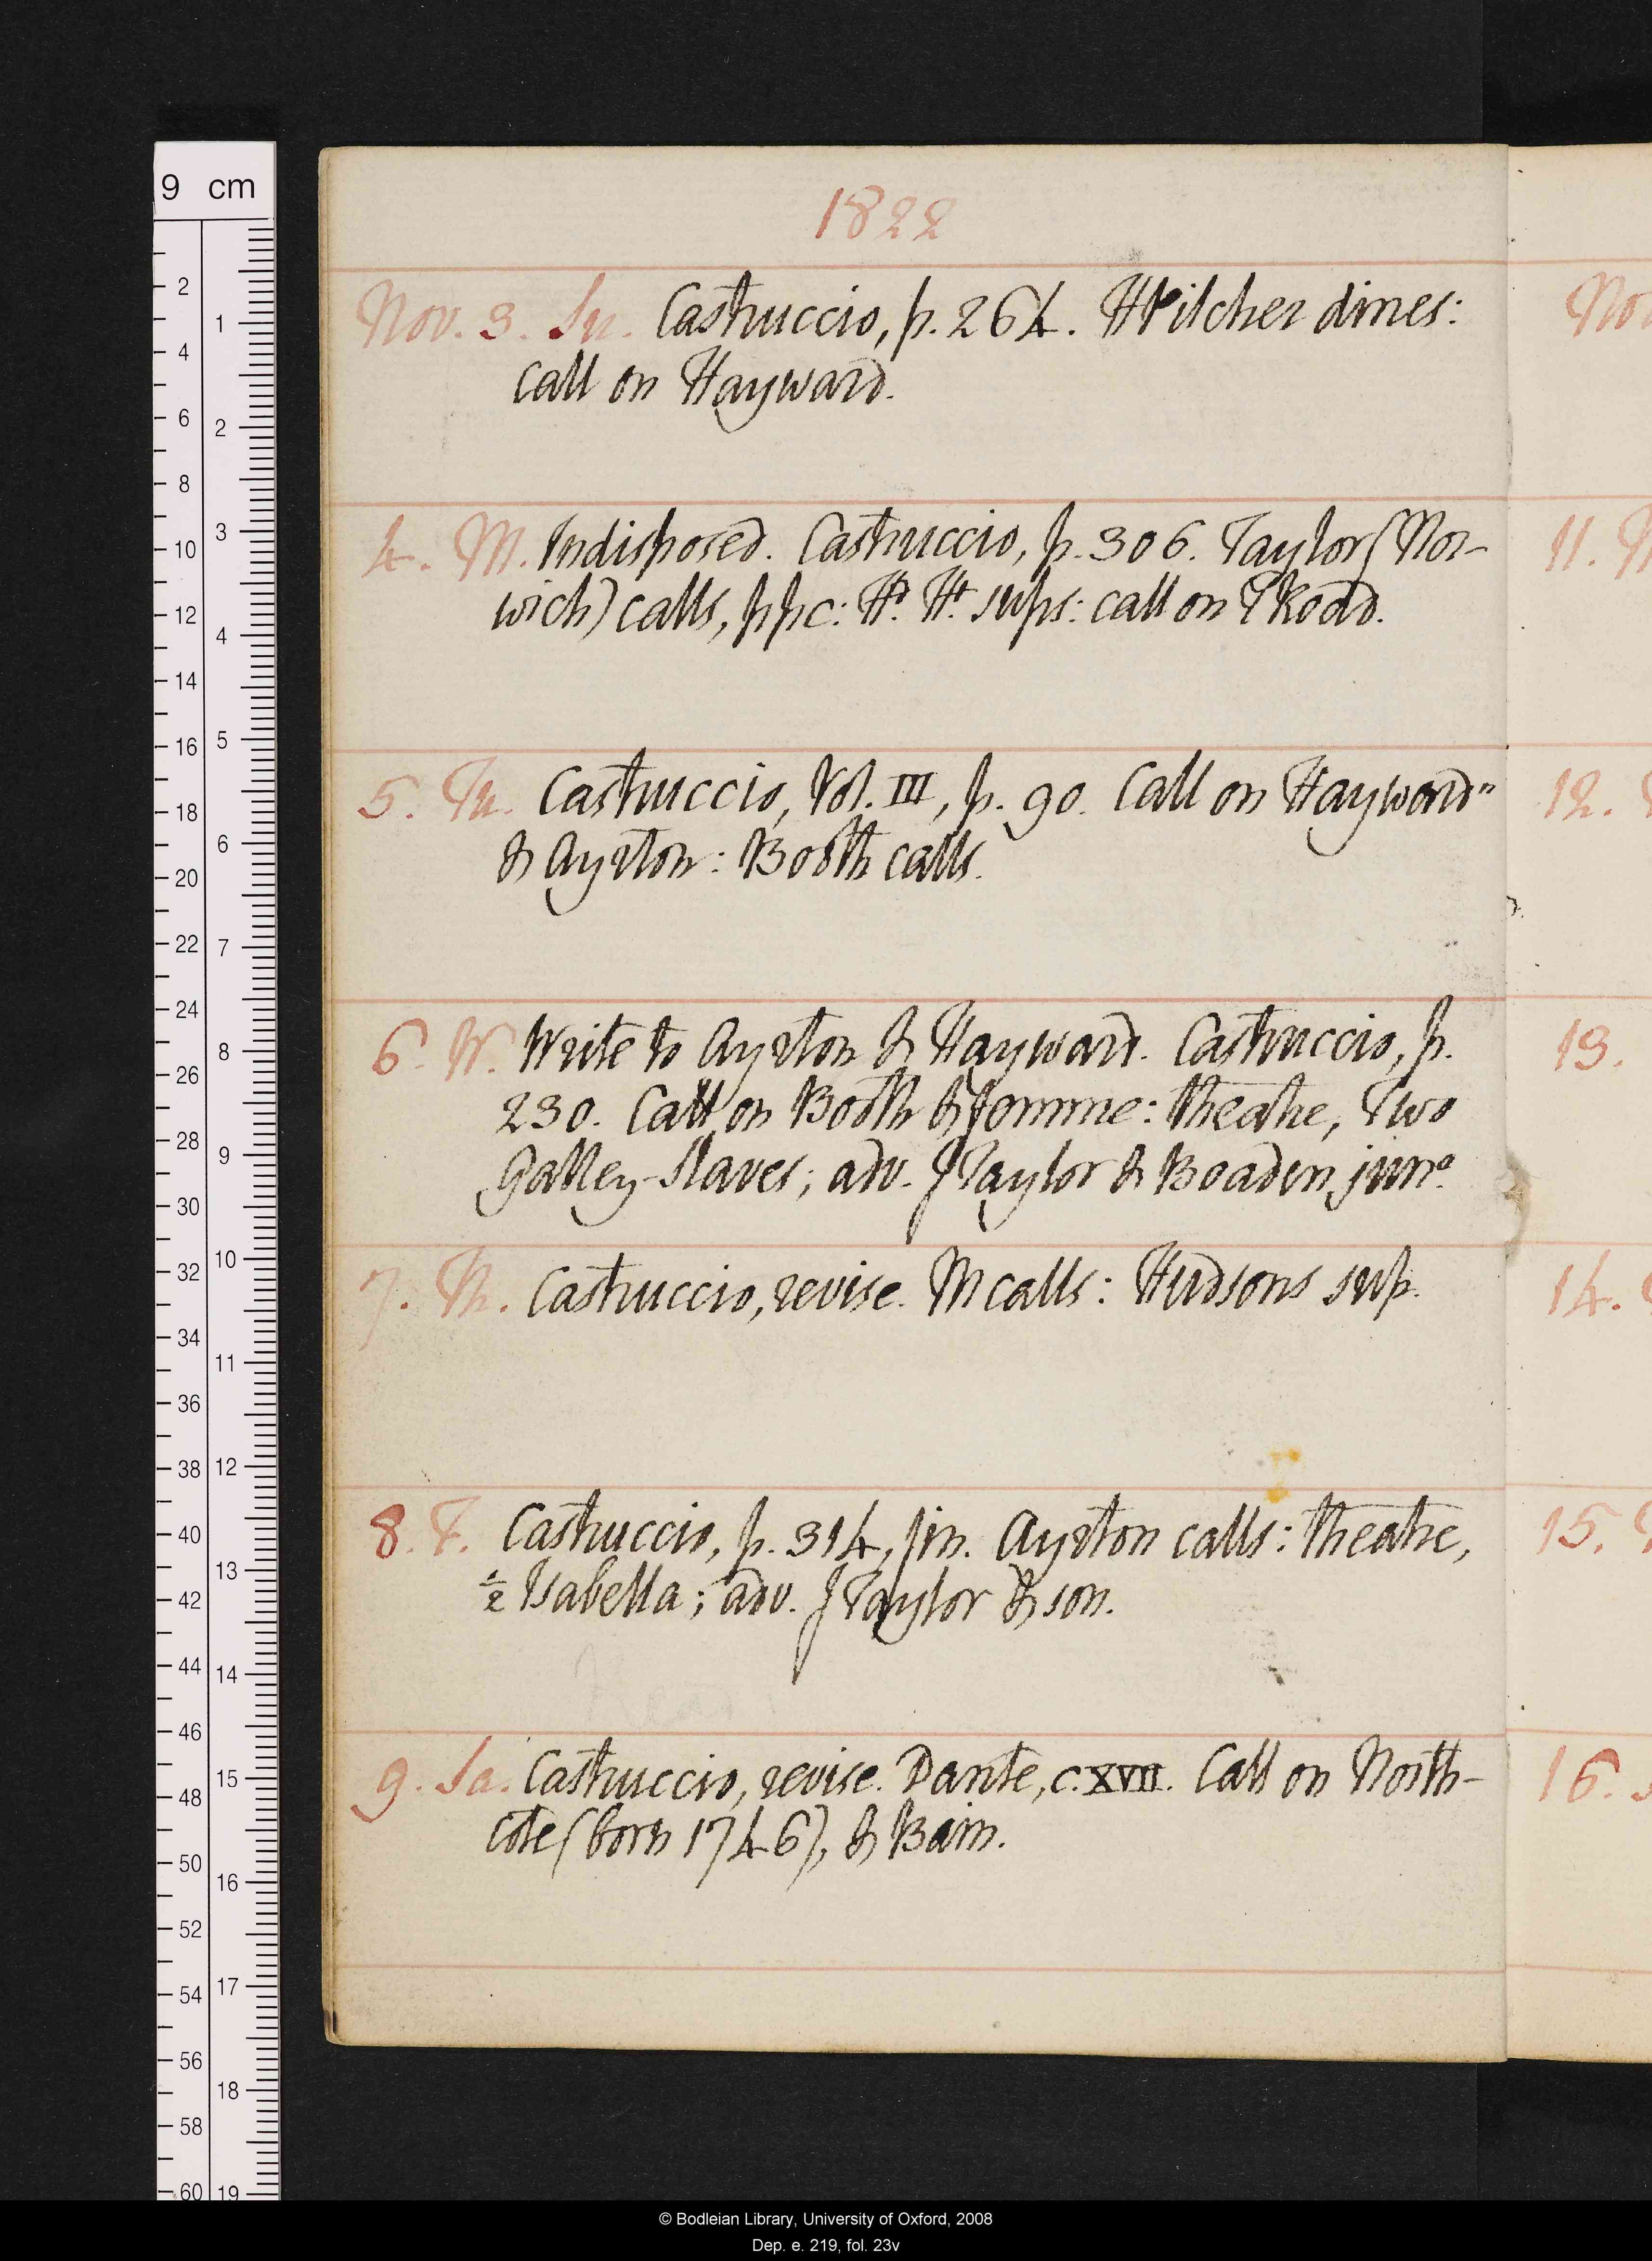 1822
Nov. 3. Su. Castruccio, p. 264. H Pilcher dines:
call on Hayward.
4. M. Indisposed. Castruccio, p. 306. Taylor (Nor-
wich) calls, ppc: Hd. Ht. sups: call on T Road.
5. Tu. Castruccio, Vol. III, p. 90. Call on Hayward"
& Ayrton: Booth calls.
6. W. Write to Ayrton & Hayward. Castruccio, p.
230. Call on Booth & Jomme: theatre, Two
Galley-Slaves; adv. J Taylor & Boaden, junr.
7. Th. Castruccio, revise. M calls: Hudsons sup.
8. F. Castruccio, p. 314, fin. Ayrton calls: theatre,
½ Isabella; adv. J Taylor & son.
9. Sa. Castruccio, revise. Dante, c. XVII. Call on North-
cote (born 1746), & Bain.
Nov
11. M
12. T
13.
14.
15.
16. S
9 cm
2
4
6
8
10
12
14
16
18
20
22
24
26
28
30
32
34
36
38
40
42
44
46
48
50
52
54
56
58
60
1
2
3
4
5
6
7
8
9
10
11
12
13
14
15
16
17
18
19
© Bodleian Library, University of Oxford, 2008
Dep. e. 219, fol. 23v